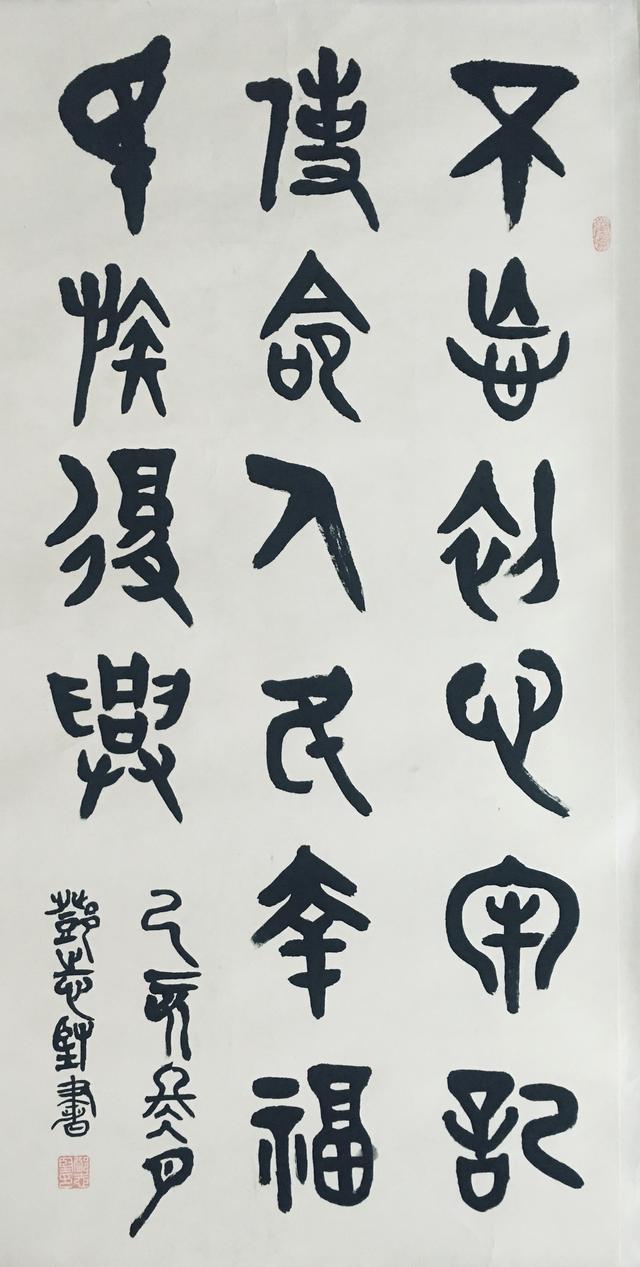 不忘初心牢記
使命人民幸福
中族復興
己亥冬月
鄧志堅書